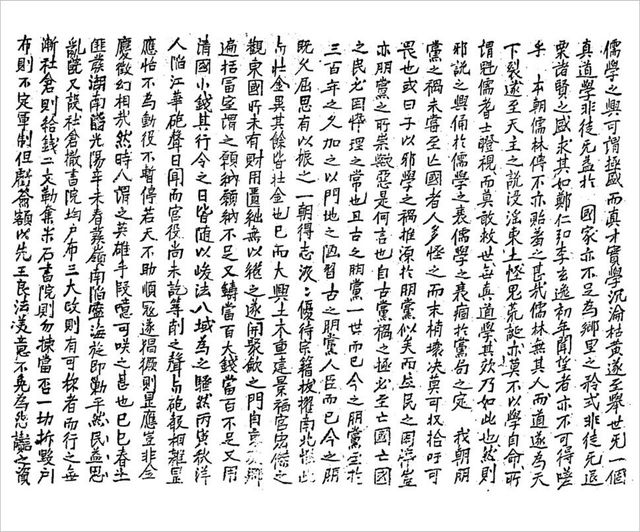 儒學之與可謂而真才實學沉淪枯黃遂至舉世死一個
真道學非徒无益於 國家亦不足為鄉里之矜式非徒死退
栗諸賢之盛求其如鄭仁弘李玄逸初年聞望者亦不可得嗟
乎 本朝儒林傳不亦貽羞之甚哉儒林無其人而道遂為天
下裂遂至天主之說浸淫東土怪鬼荒誕亦莫不以學自命所
謂魁儒耆士瞪視而莫敢救世無真道學其效乃如此也然則
邪說之興俑於儒學之衰儒學之衰痼於黨局之定 我朝朋
黨之禍未嘗至亡國者人多怪之而末梢壞決莫可收拾吁可
畏也或曰子以邪學之禍推源於朋黨似矣而生民之困瘁豈
亦朋黨之所祟歟惡是何言也自古黨禍之極必至亡國亡國
之民必困悴理之常也且古之朋黨一世而已今之朋黨至於
三百年之久加之以門地之陋習古之朋黨人臣而已今之朋
既久屈思有以振之一朝得志 優待宗籍拔擢南北
壮金異其餘皆壮金也已而大興土木重建景福宮宏傑之
觀東國所未有財用匱絀無以繼之遂開聚斂之門自京
遍括富室謂之願納願納不足又鑄當百大錢當百不足又用
清國小錢其行令之日皆随以峻法八域為之騷然丙寅秋洋
人陷江華砲聲日聞而宮役尚未訖 削之聲与砲 相雜昰
應怡不為動役不暫停若天不助順寇遂猖獗則昰應豈非金
慶徵幻相哉然時人謂之英雄手段噫可咲之甚也已巳春土
匪發湖南 光陽辛未春發嶺南陷寧海旋即勦平然民益思
亂 又設社倉撤書院均戶布三大政則有可称者而行之無
漸社倉則給錢二文勒 米石書院則勿揀當否一切拆毀戶
布則不定軍制但 額以先王良法 意不免為怨 之資